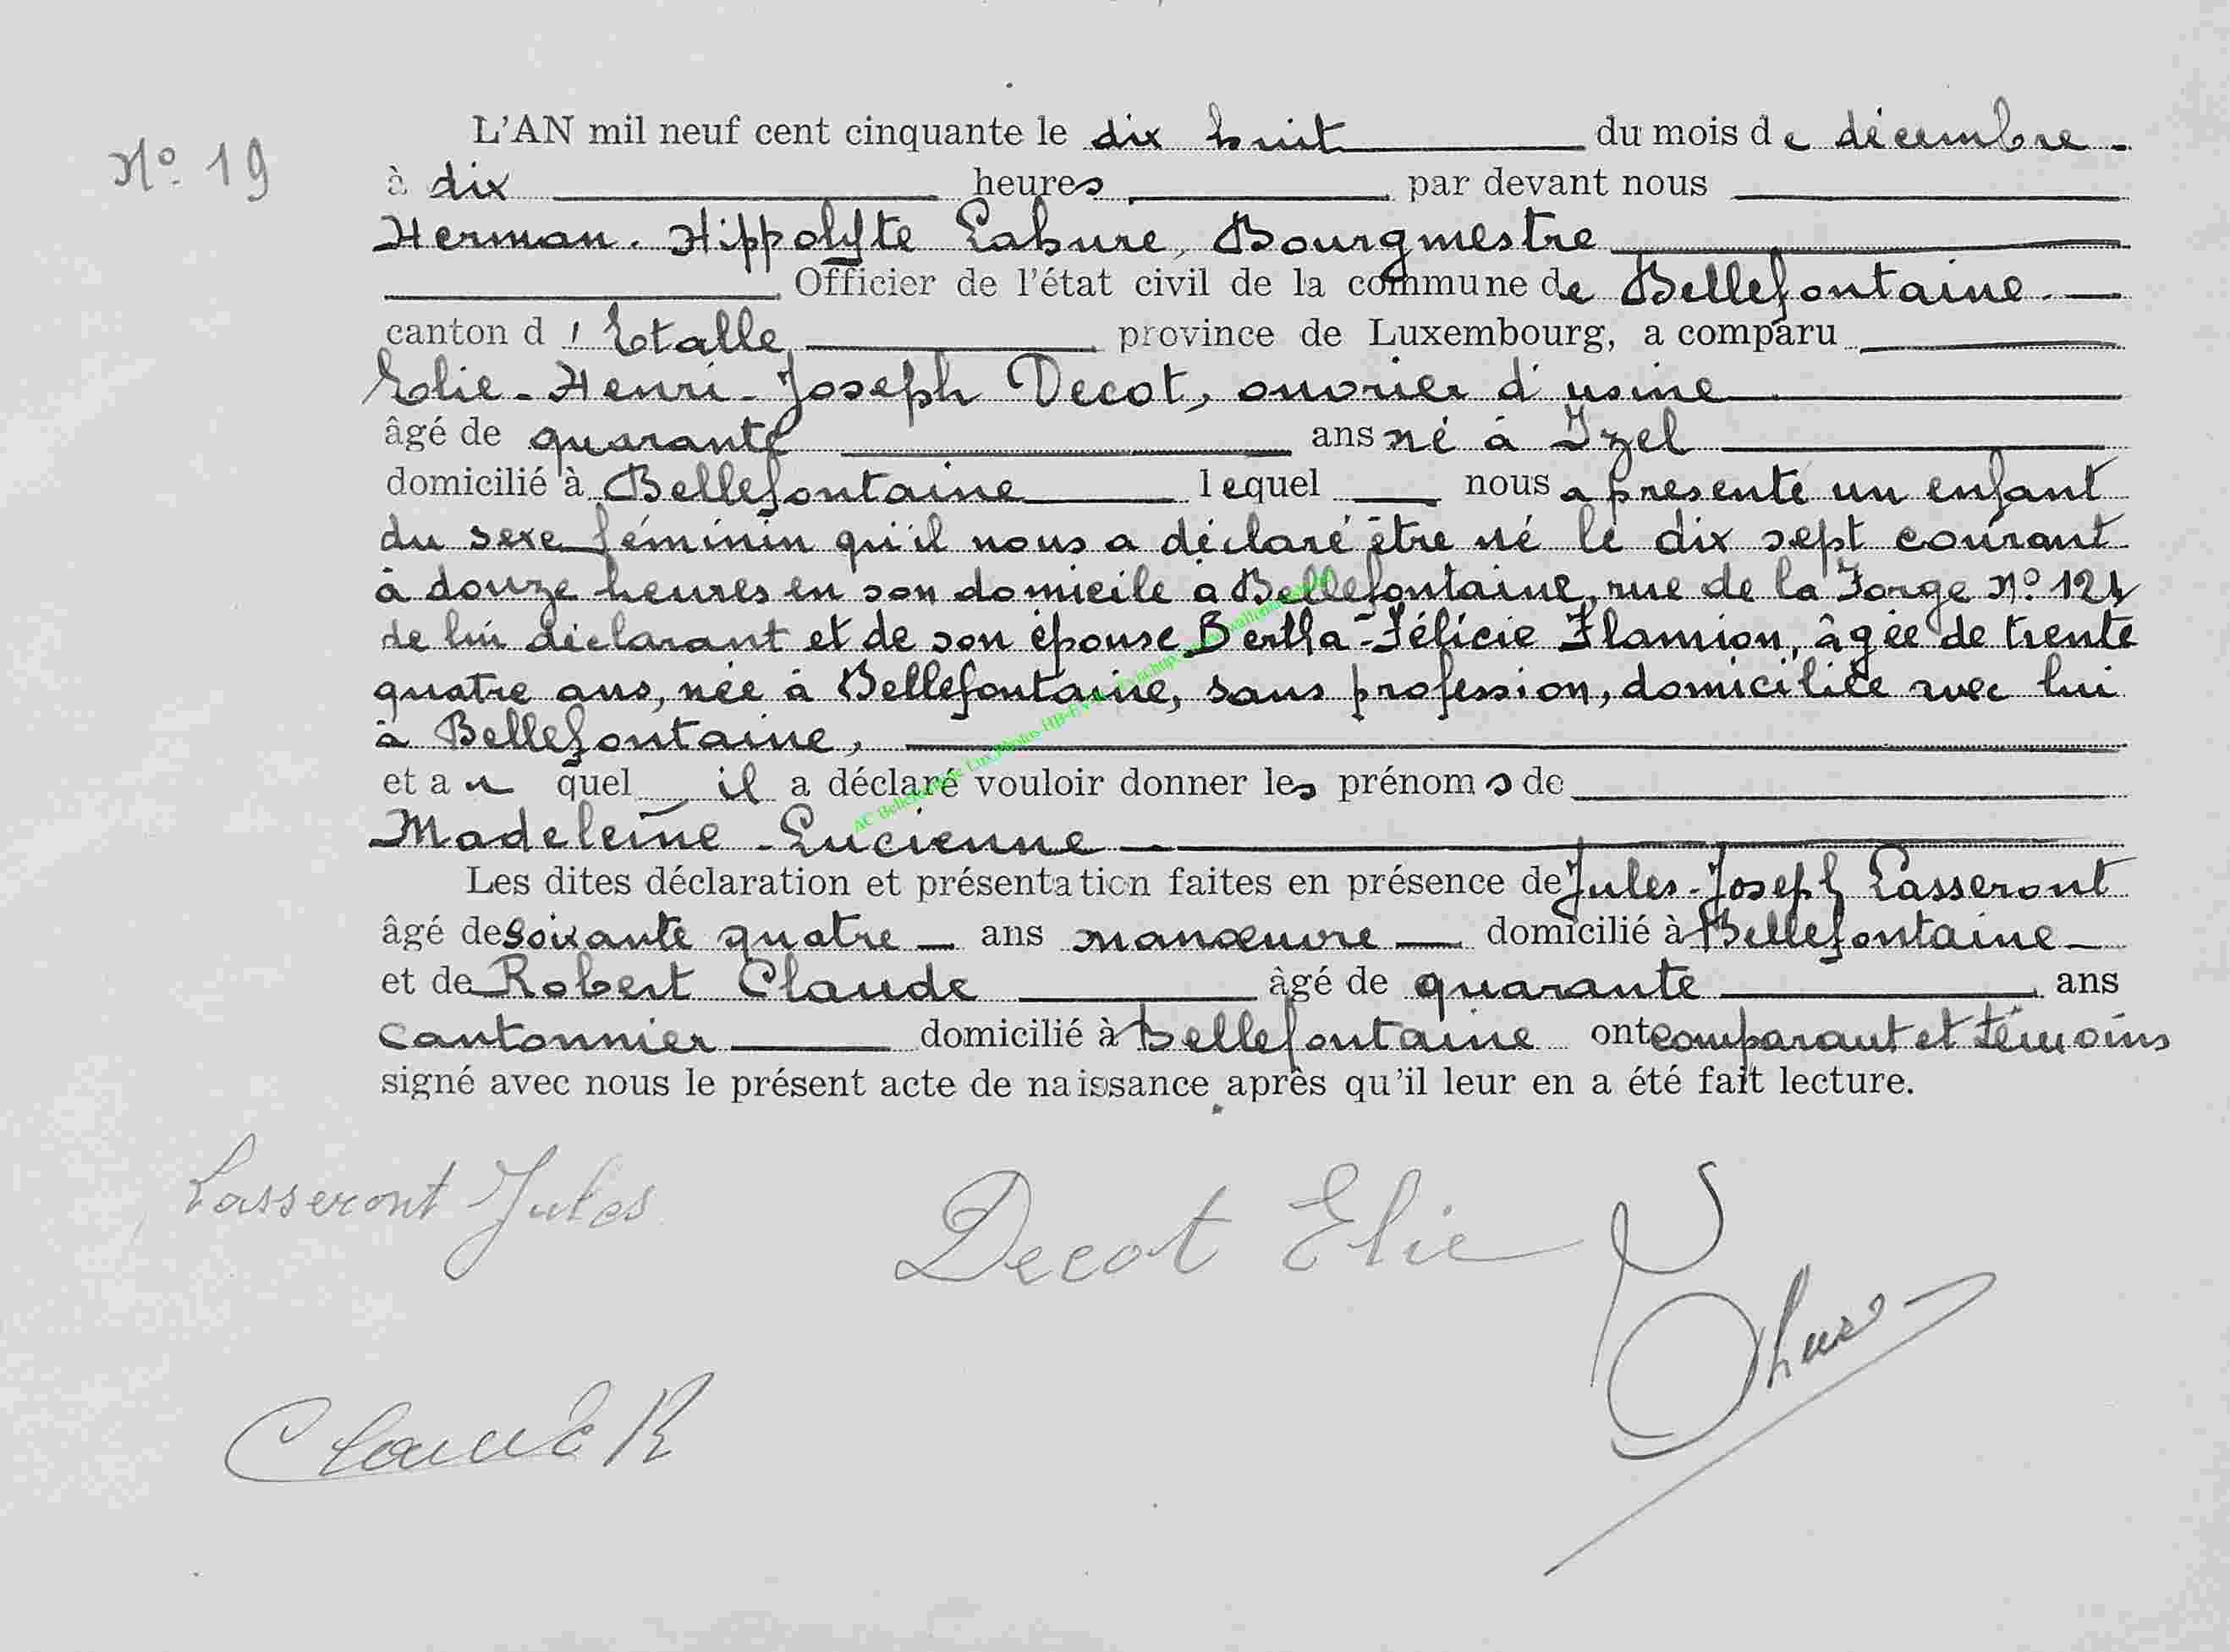 N° 19
L'AN mil neuf cent cinquante le dix huit du mois de décembre
à dix heures par devant nous
Herman-Hippolyte Lahure, Bourgmestre
Officier de l'état civil de la commune de Bellefontaine
canton d'Etalle province de Luxembourg, a comparu
Elie-Henri-Joseph Decot, ouvrier d'usine
âgé de quarante ans né à Izel
domicilié à Bellefontaine lequel nous a présenté un enfant
du sexe féminin qu'il nous a déclaré être né le dix sept courant
à douze heures en son domicile à Bellefontaine, rue de la Forge N° 124
de lui déclarant et de son épouse Bertha-Félicie Flamion, âgée de trente
quatre ans, née à Bellefontaine, sans profession, domiciliée avec lui
à Bellefontaine,
et au quel il a déclaré vouloir donner les prénoms de
Madeleine-Lucienne
Les dites déclaration et présentation faites en présence de Jules-Joseph Lasseront
âgé de soixante quatre ans manœuvre domicilié à Bellefontaine
et de Robert Claude âgé de quarante ans
cantonnier domicilié à Bellefontaine ont comparant et témoins
signé avec nous le présent acte de naissance après qu'il leur en a été fait lecture.
Lasseront Jules
Decot Elie
Claude R